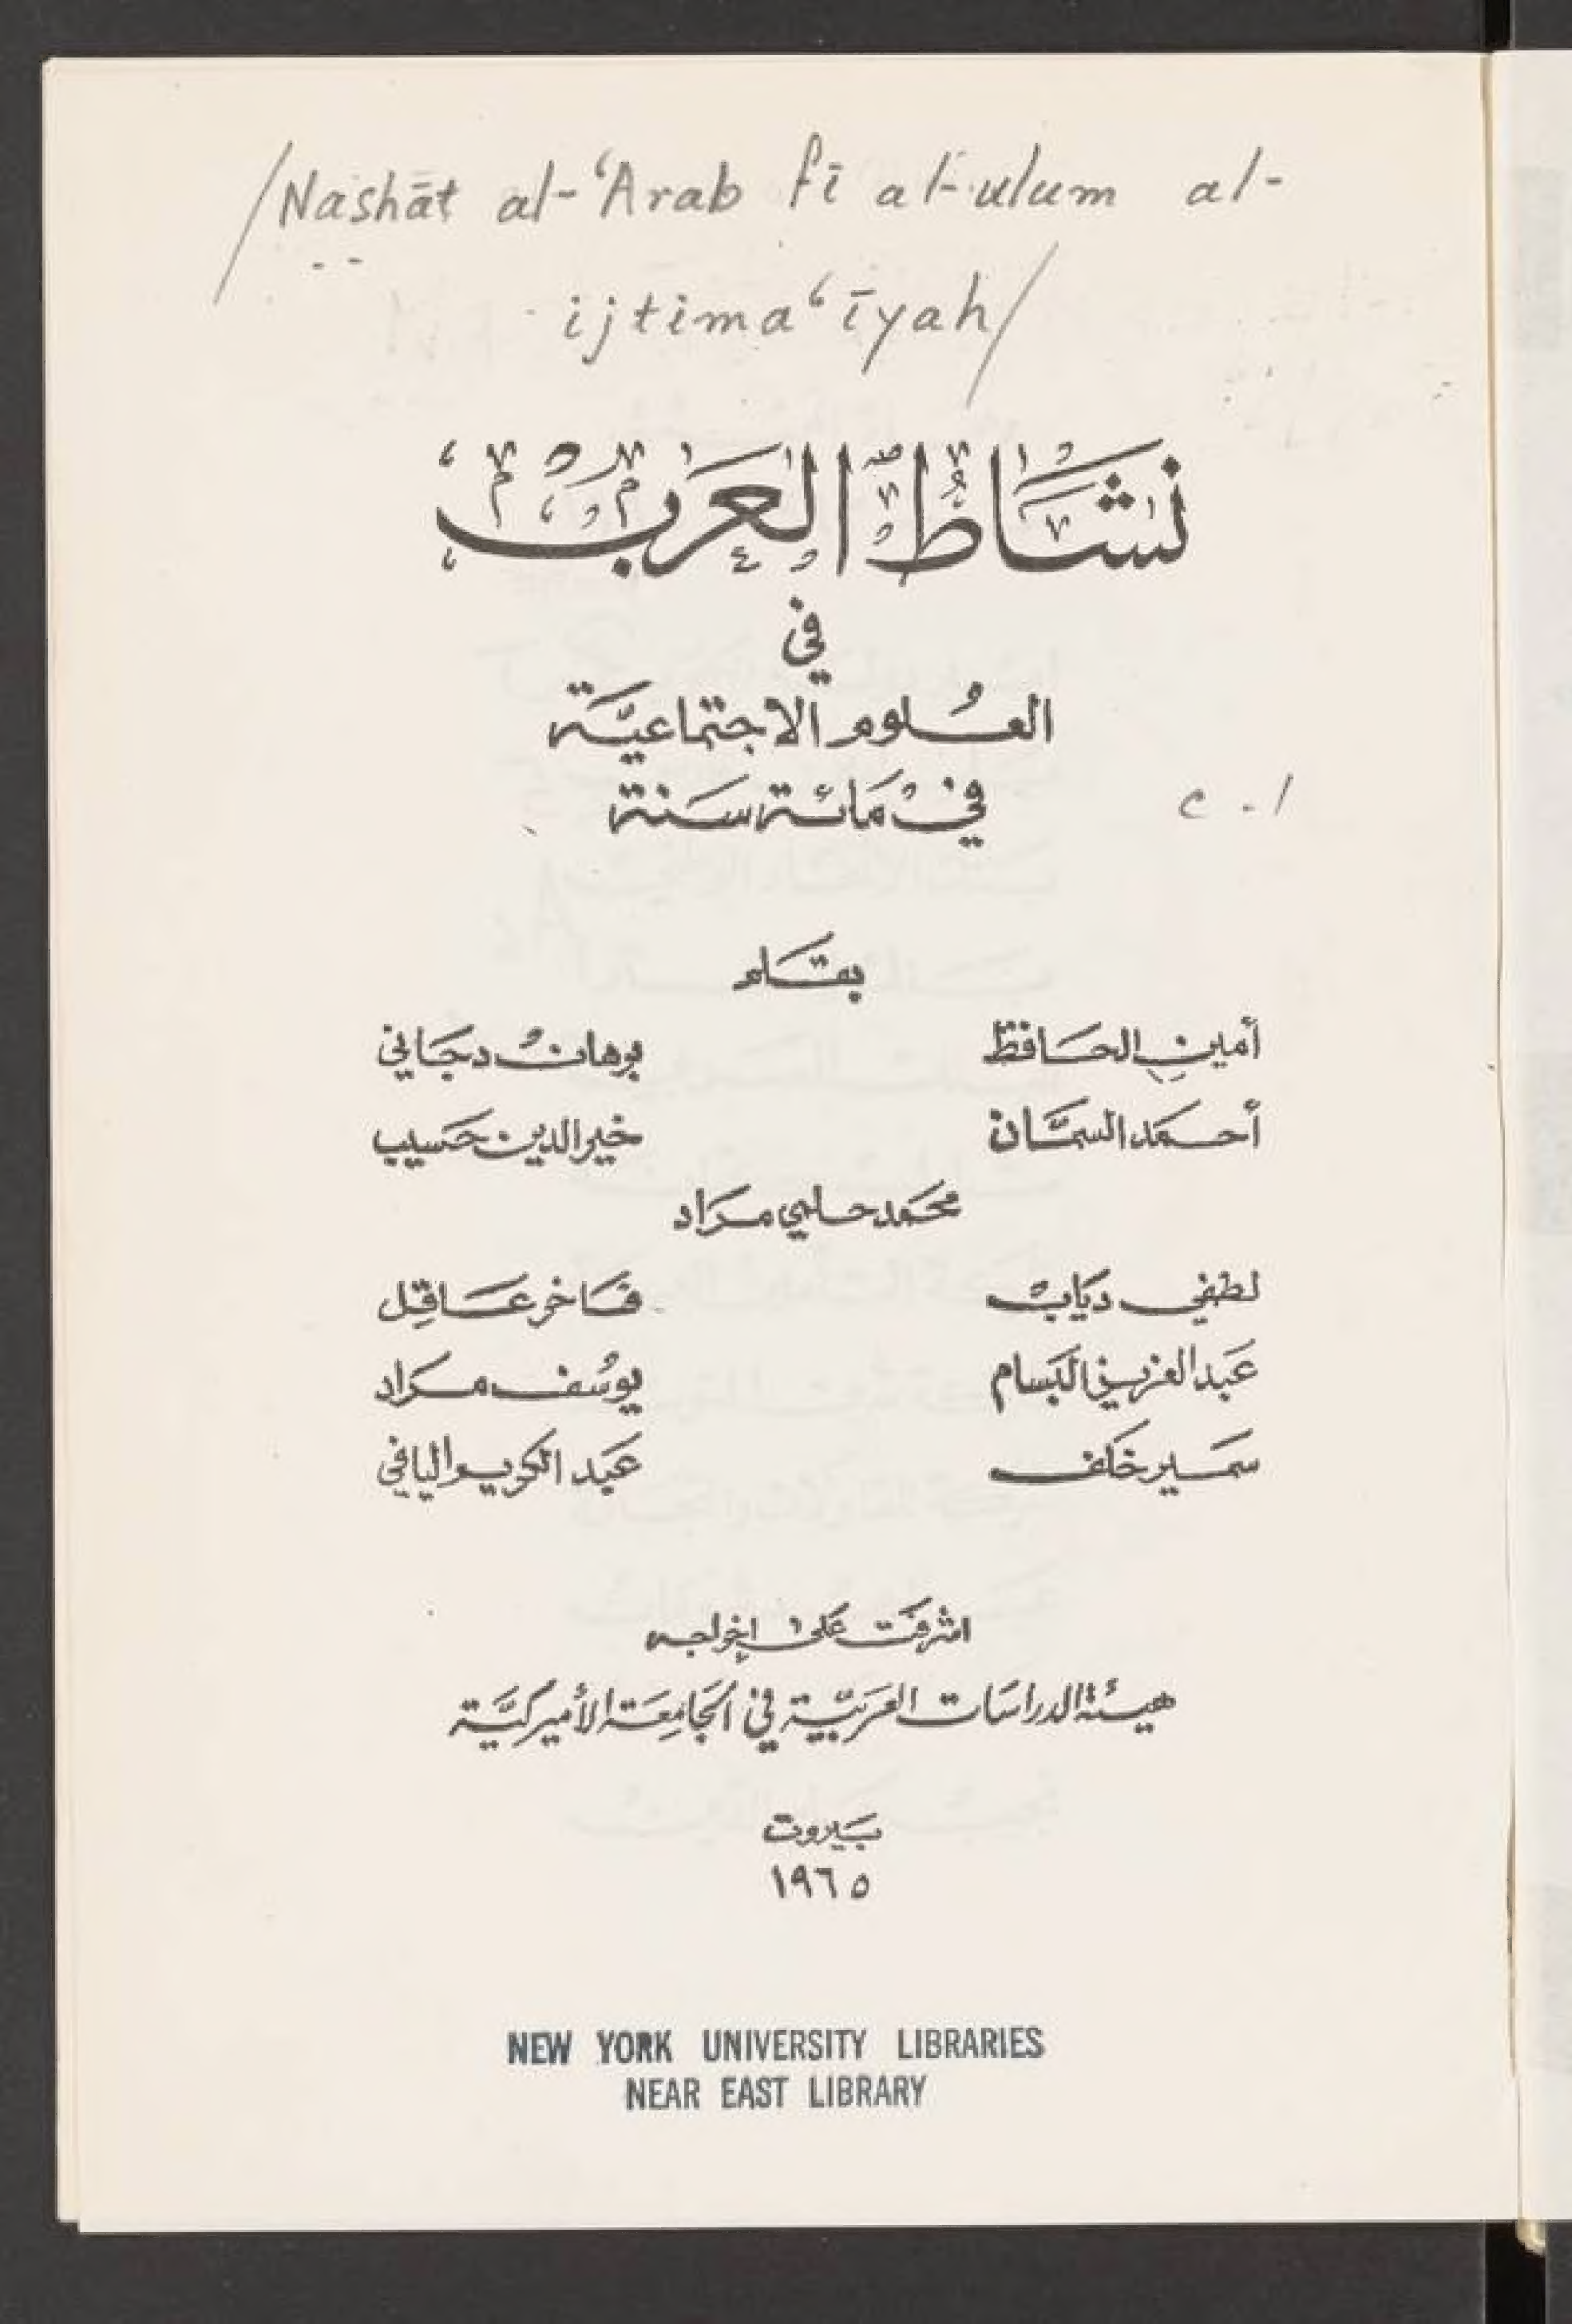 /Nashāt al-‘Arab fī al-ulum al-
ijtima‘īyah/
نَشَاطُ العَرَبْ
في
العُلوم الاجتماعيَّة
في مَائة سَنة
c.1
بقَلم
أمين الحَافظ برهان دجَاني
أحمَد السمَّان خير الدين حَسيب
محَمد حلمي مرَاد
لطفي ديَابْ فَاخر عَاقِل
عَبد العزيز البَسام يوسُف مرَاد
سمَير خلَف عَبد الكريم اليافي
اشرفَت عَلى إخراجه
هيئة الدراسَات العرَبيّة في الجَامِعَة الأميركيَّة
بَيروت
١٩٦٥
NEW YORK UNIVERSITY LIBRARIES
NEAR EAST LIBRARY